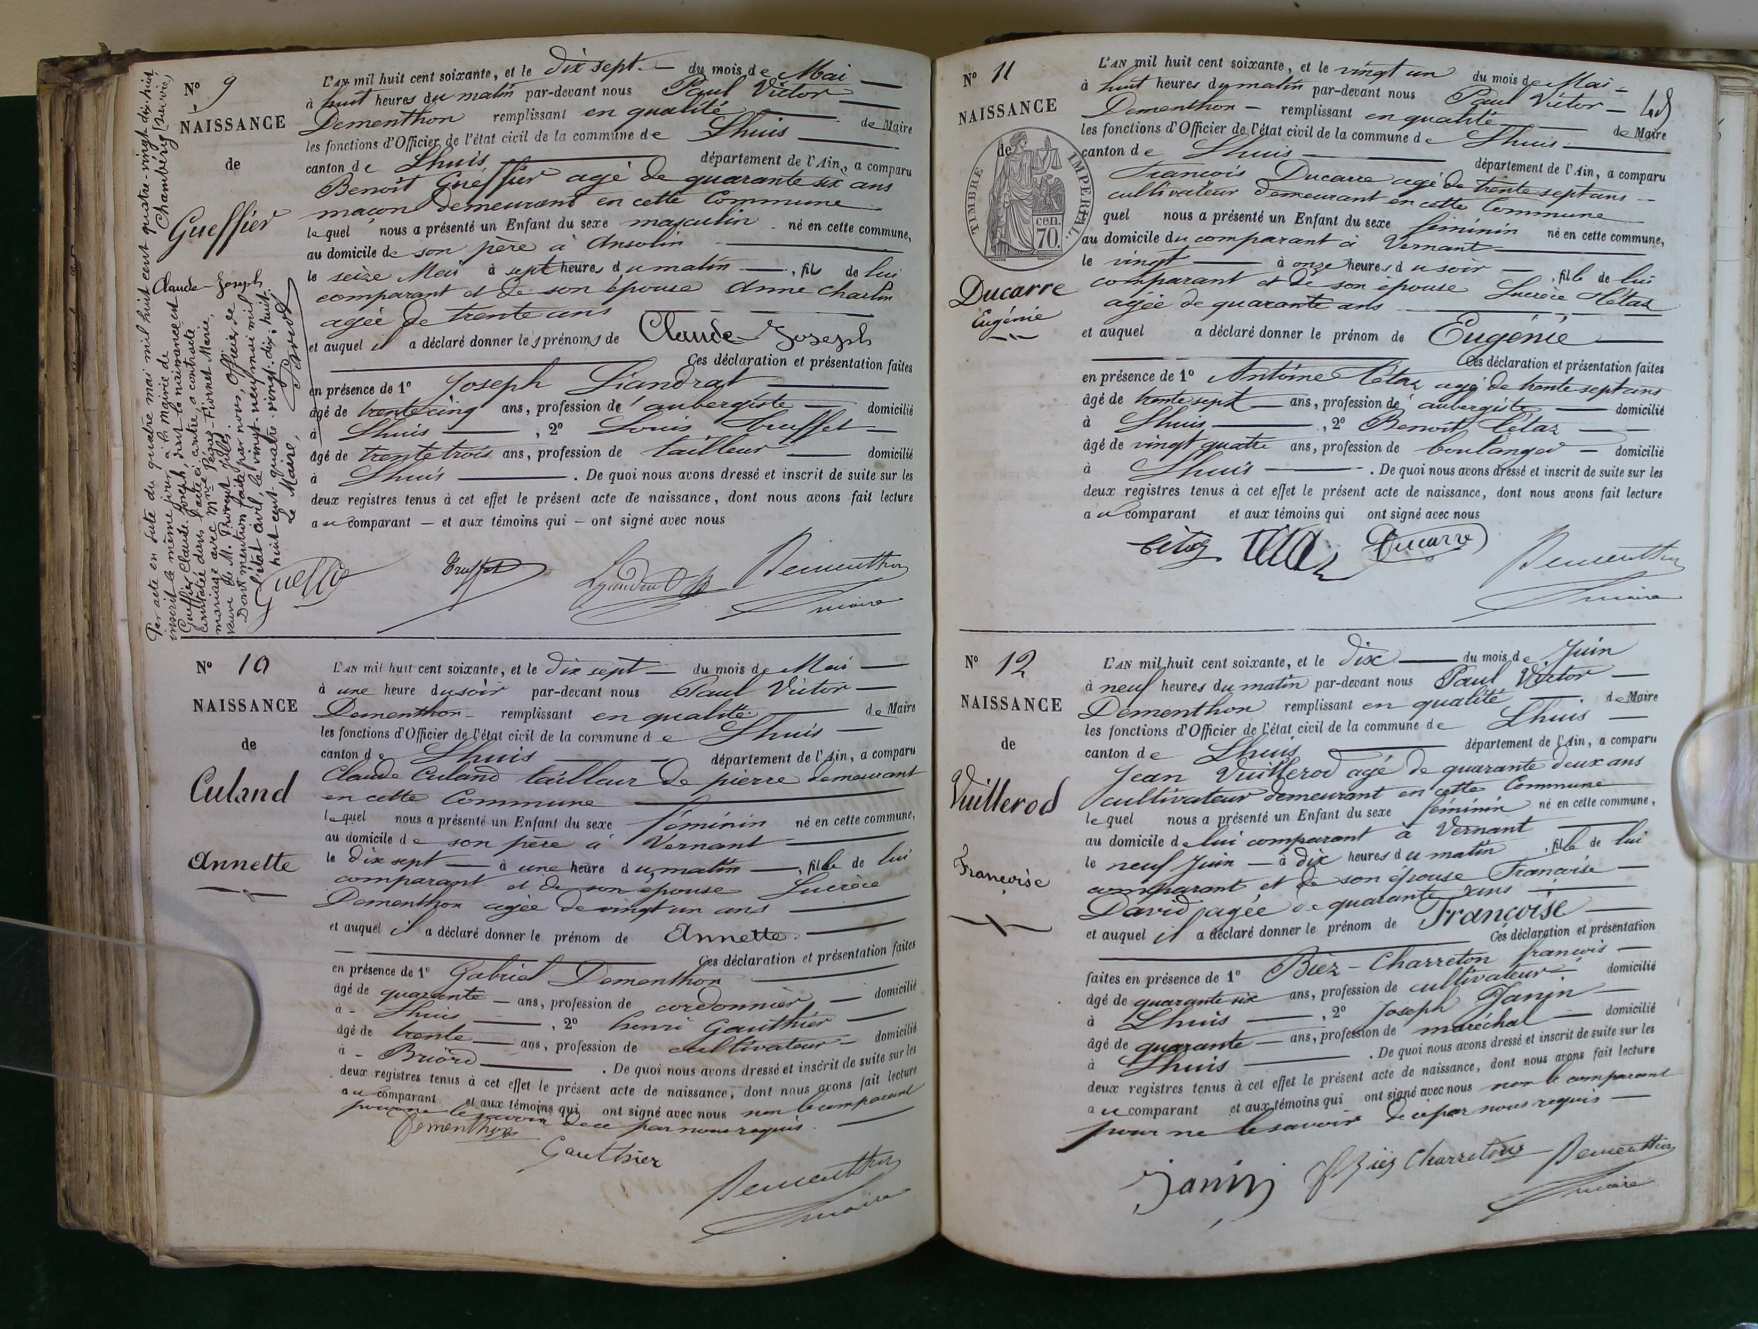 N° 9
NAISSANCE
de
Gueffier
Claude-Joseph
Par acte en date du quatre mai mil huit cent quatre-vingt dix-huit
inscrit le même jour à la mairie de Chambéry (Savoie)
Gueffier Claude Joseph, dont la naissance est
constatée dans l'acte ci-contre a contracté
mariage avec Mme
veuve de M.
Dont mention faite par nous, Officier de
l'état civil, le vingt-neuf mai mil
huit cent quatre-vingt-dix-huit.
Le Maire,
L'AN mil huit cent soixante, et le dix sept du mois de Mai
à huit heures du matin par-devant nous Paul Victor
Dementhon remplissant en qualité de Maire
les fonctions d'Officier de l'état civil de la commune de Lhuis
canton de Lhuis département de l'Ain, a comparu
Benoit Gueffier agé de quarante six ans
maçon demeurant en cette Commune
lequel nous a présenté un Enfant du sexe masculin né en cette commune,
au domicile de son père à Ansolin
le seize Mai à sept heures du matin, fils de lui
comparant et de son épouse Anne Charlin
agée de trente ans
et auquel il a déclaré donner les prénoms de Claude Joseph
Ces déclaration et présentation faites
en présence de 1° Joseph Liandrat
âgé de trente cinq ans, profession d'aubergiste domicilié
à Lhuis, 2° Louis Truffet
âgé de trente trois ans, profession de tailleur domicilié
à Lhuis. De quoi nous avons dressé et inscrit de suite sur les
deux registres tenus à cet effet le présent acte de naissance, dont nous avons fait lecture
au comparant et aux témoins qui ont signé avec nous
Gueffier Truffet Liandrat Dementhon
maire
N° 10
NAISSANCE
de
Culand
Annette
L'AN mil huit cent soixante, et le dix sept du mois de Mai
à une heure du soir par-devant nous Paul Victor
Dementhon remplissant en qualité de Maire
les fonctions d'Officier de l'état civil de la commune de Lhuis
canton de Lhuis département de l'Ain, a comparu
Claude Culand tailleur de pierre demeurant
en cette Commune
lequel nous a présenté un Enfant du sexe féminin né en cette commune,
au domicile de son père à Vernant
le dix sept à une heure du matin, fille de lui
comparant et de son épouse Lucrèce
Dementhon agée de vingt un ans
et auquel il a déclaré donner le prénom de Annette.
Ces déclaration et présentation faites
en présence de 1° Gabriel Dementhon
âgé de quarante ans, profession de cordonnier domicilié
à Lhuis, 2° henri Gauthier
âgé de trente ans, profession de cultivateur domicilié
à Briord. De quoi nous avons dressé et inscrit de suite sur les
deux registres tenus à cet effet le présent acte de naissance, dont nous avons fait lecture
au comparant et aux témoins qui ont signé avec nous non le comparant
pour ne le savoir de ce par nous requis.
Dementhon
Gauthier
Dementhon
maire
N° 11
NAISSANCE
de
TIMBRE IMPÉRIAL
70 cen.
Ducarre
Eugénie
L'AN mil huit cent soixante, et le vingt un du mois de Mai
à huit heures du matin par-devant nous Paul Victor
Dementhon remplissant en qualité de Maire
les fonctions d'Officier de l'état civil de la commune de Lhuis
canton de Lhuis département de l'Ain, a comparu
François Ducarre agé de trente sept ans
cultivateur demeurant en cette Commune
quel nous a présenté un Enfant du sexe féminin né en cette commune,
au domicile du comparant à Vernant
le vingt à onze heures du soir, fille de lui
comparant et de son épouse Lucrèce Cétaz
agée de quarante ans
et auquel a déclaré donner le prénom de Eugénie
Ces déclaration et présentation faites
en présence de 1° Antoine Cétaz agé de trente sept ans
âgé de trente sept ans, profession d'aubergiste domicilié
à Lhuis, 2° Benoit Cétaz
âgé de vingt quatre ans, profession de boulanger domicilié
à Lhuis. De quoi nous avons dressé et inscrit de suite sur les
deux registres tenus à cet effet le présent acte de naissance, dont nous avons fait lecture
au comparant et aux témoins qui ont signé avec nous
Ducarre Dementhon
maire
N° 12
NAISSANCE
de
Vuillerod
Françoise
L'AN mil huit cent soixante, et le dix du mois de Juin
à neuf heures du matin par-devant nous Paul Victor
Dementhon remplissant en qualité de Maire
les fonctions d'Officier de l'état civil de la commune de Lhuis
canton de Lhuis département de l'Ain, a comparu
Jean Vuillerod agé de quarante deux ans
cultivateur demeurant en cette Commune
lequel nous a présenté un Enfant du sexe féminin né en cette commune,
au domicile de lui comparant à Vernant
le neuf Juin à dix heures du matin, fille de lui
comparant et de son épouse Françoise
David agée de quarante ans
et auquel il a déclaré donner le prénom de Françoise
Ces déclaration et présentation
faites en présence de 1° Biez-Charreton françois
âgé de quarante six ans, profession de cultivateur domicilié
à Lhuis, 2° Joseph Janin
âgé de quarante ans, profession de maréchal domicilié
à Lhuis. De quoi nous avons dressé et inscrit de suite sur les
deux registres tenus à cet effet le présent acte de naissance, dont nous avons fait lecture
au comparant et aux témoins qui ont signé avec nous non le comparant
pour ne le savoir de ce par nous requis
Janin Biez Charreton Dementhon
maire